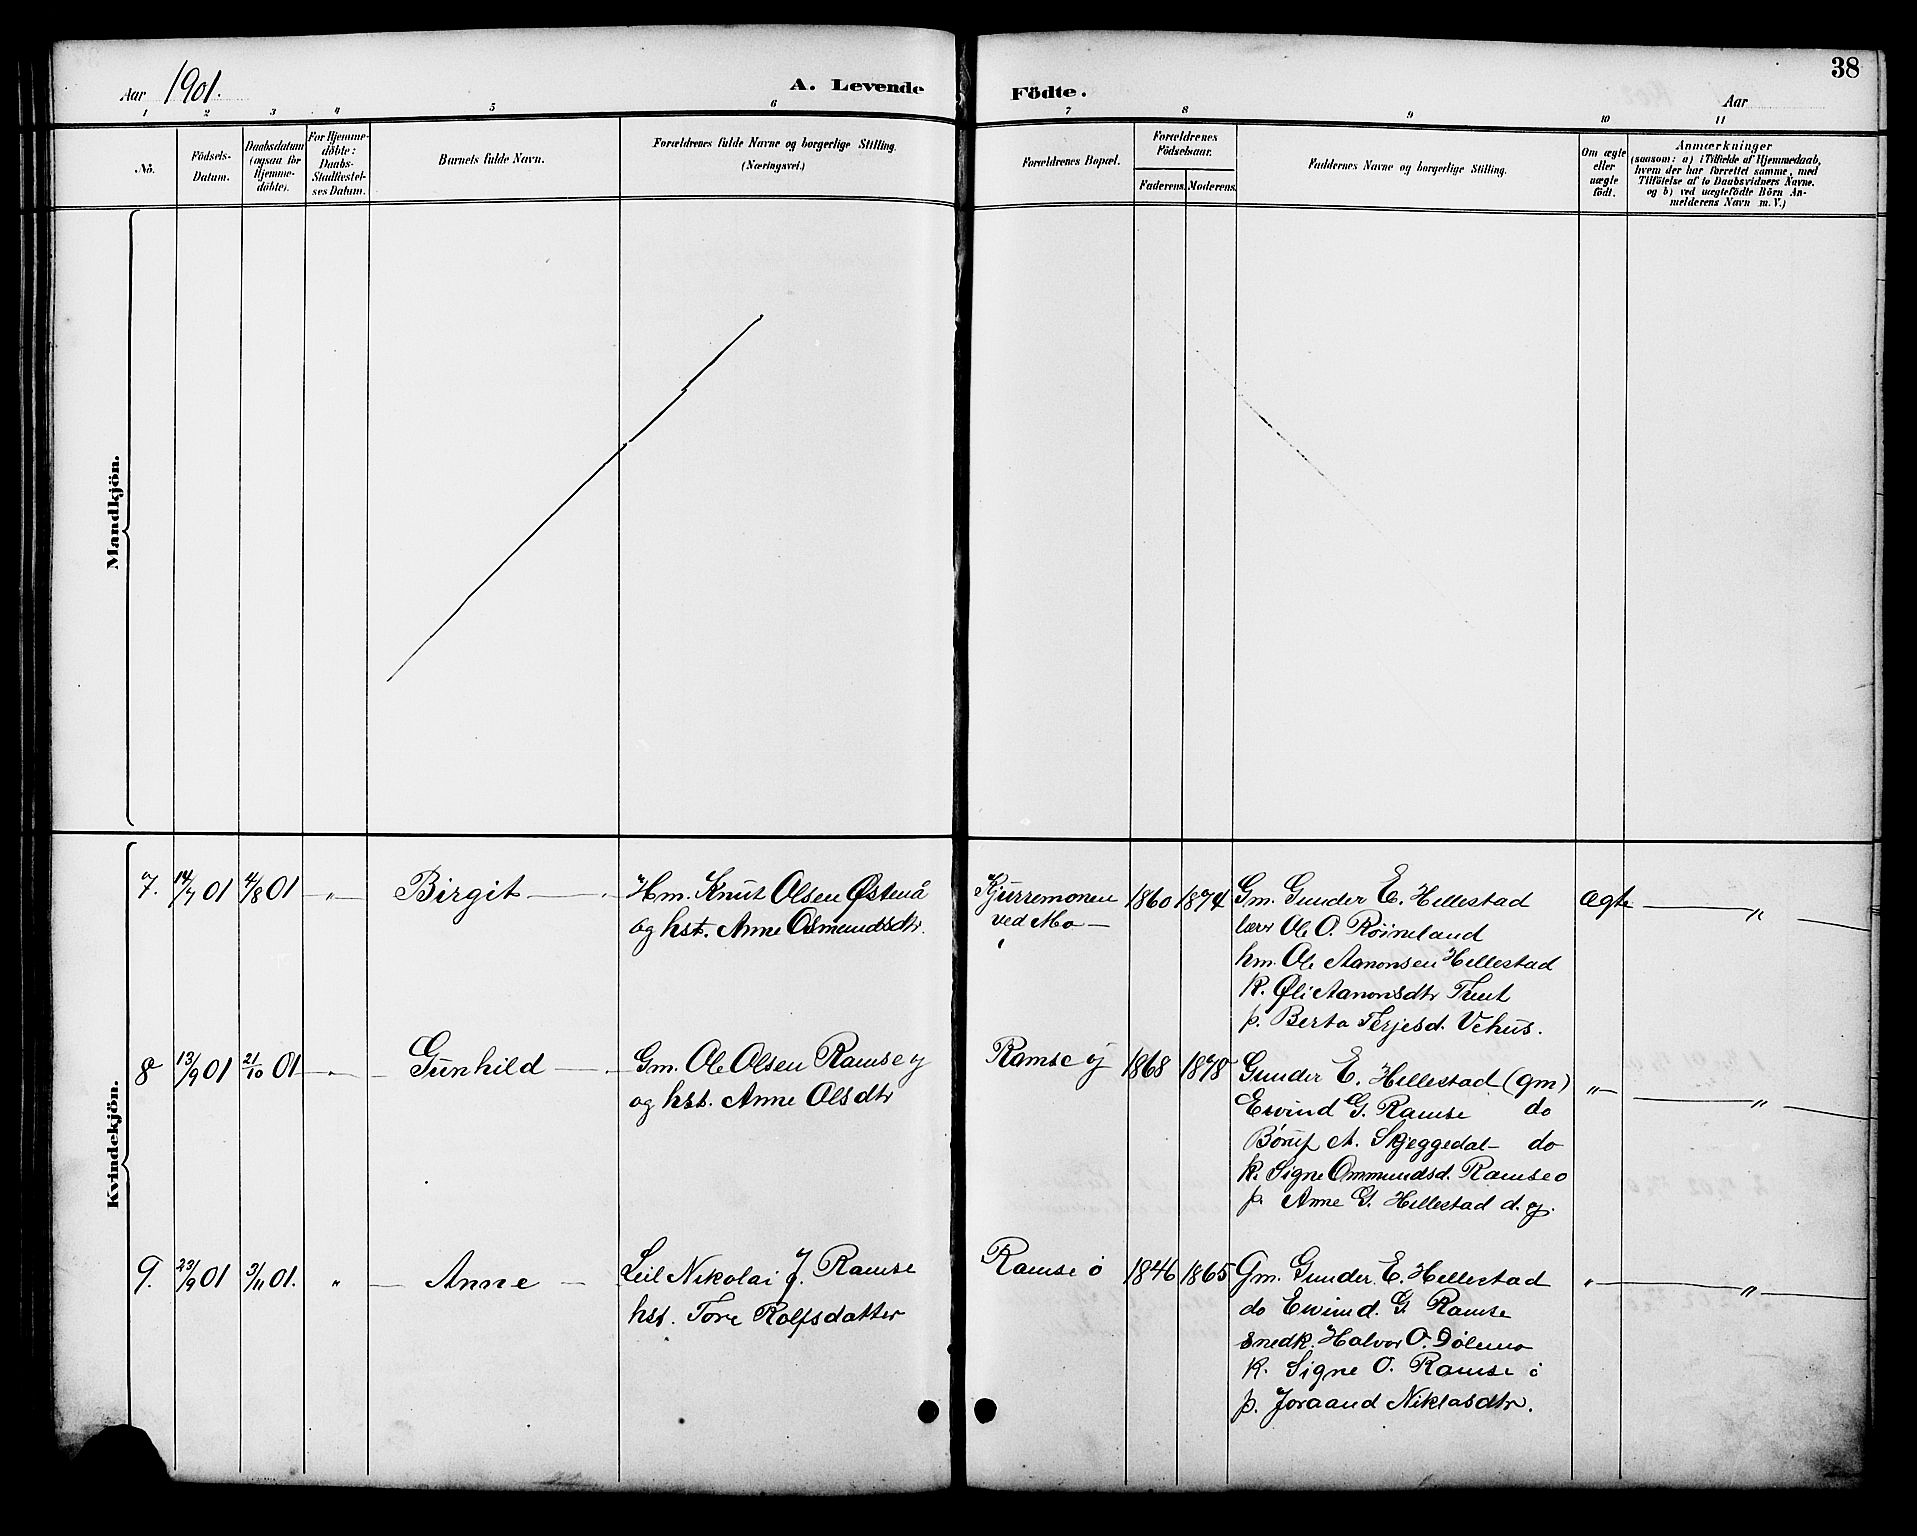 38
Aar 1901.
A. Levende Födte.
Aar
1 2 3 4 5 6 7 8 9 10 11
No.
Födsels-Datum.
Daabsdatum (ogsaa for Hjemme-döbte).
For Hjemme-döbte: Daabs-Stadfæstel-ses Datum.
Barnets fulde Navn.
Forældrenes fulde Navne og borgerlige Stilling. (Næringsvei.)
Forældrenes Bopæl.
Forældrenes Födselsaar.
Faderens. Moderens.
Faddernes Navne og borgerlige Stilling.
Om ægte eller uægte födt.
Anmærkninger
(saasom: a) i Tilfælde af Hjemmedaab,
hvem der har forrettet samme, med
Tilföielse af to Daabsvidners Navne.
og b) ved uægtefödte Börn An-
melderens Navn m. V.)
Mandkjön.
Kvindekjön.
7. 14/7 01 4/8 01 " Birgit
Hm. Knut Olsen Østenå
og hst. Anne Osmundsdtr.
Kjurremonen
ved Mo
1860 1874
Gm. Gunder E. Hellestad
lærr Ole O. Røineland
hm. Ole Aanonsen Hellestad
k. Øli Aanonsdtr Treet
p. Berta Terjesd. Vehus.
Ægte "
8 13/9 01 21/10 01 " Gunhild
Gm. Ole Olsen Ramse y
og hst. Anne Olsdtr
Ramse y
1868 1878
Gunder E. Hellestad (gm)
Eivind G. Ramse do
Børuf A. Skjeggedal do
k. Signe Ommundsd. Ramse o
p. Anne G. Hellestad d. y.
" "
9. 23/9 01 3/11 01. " Anne
Leil Nikolai J. Ramse
hst. Tore Rolfsdatter
Ramse ö
1846 1865
Gm. Gunder E. Hellestad
do Eivind. G Ramse
snedk. Halvor O. Dølemo
k. Signe O. Ramse ö
p. Joraand Niklasdtr.
" "